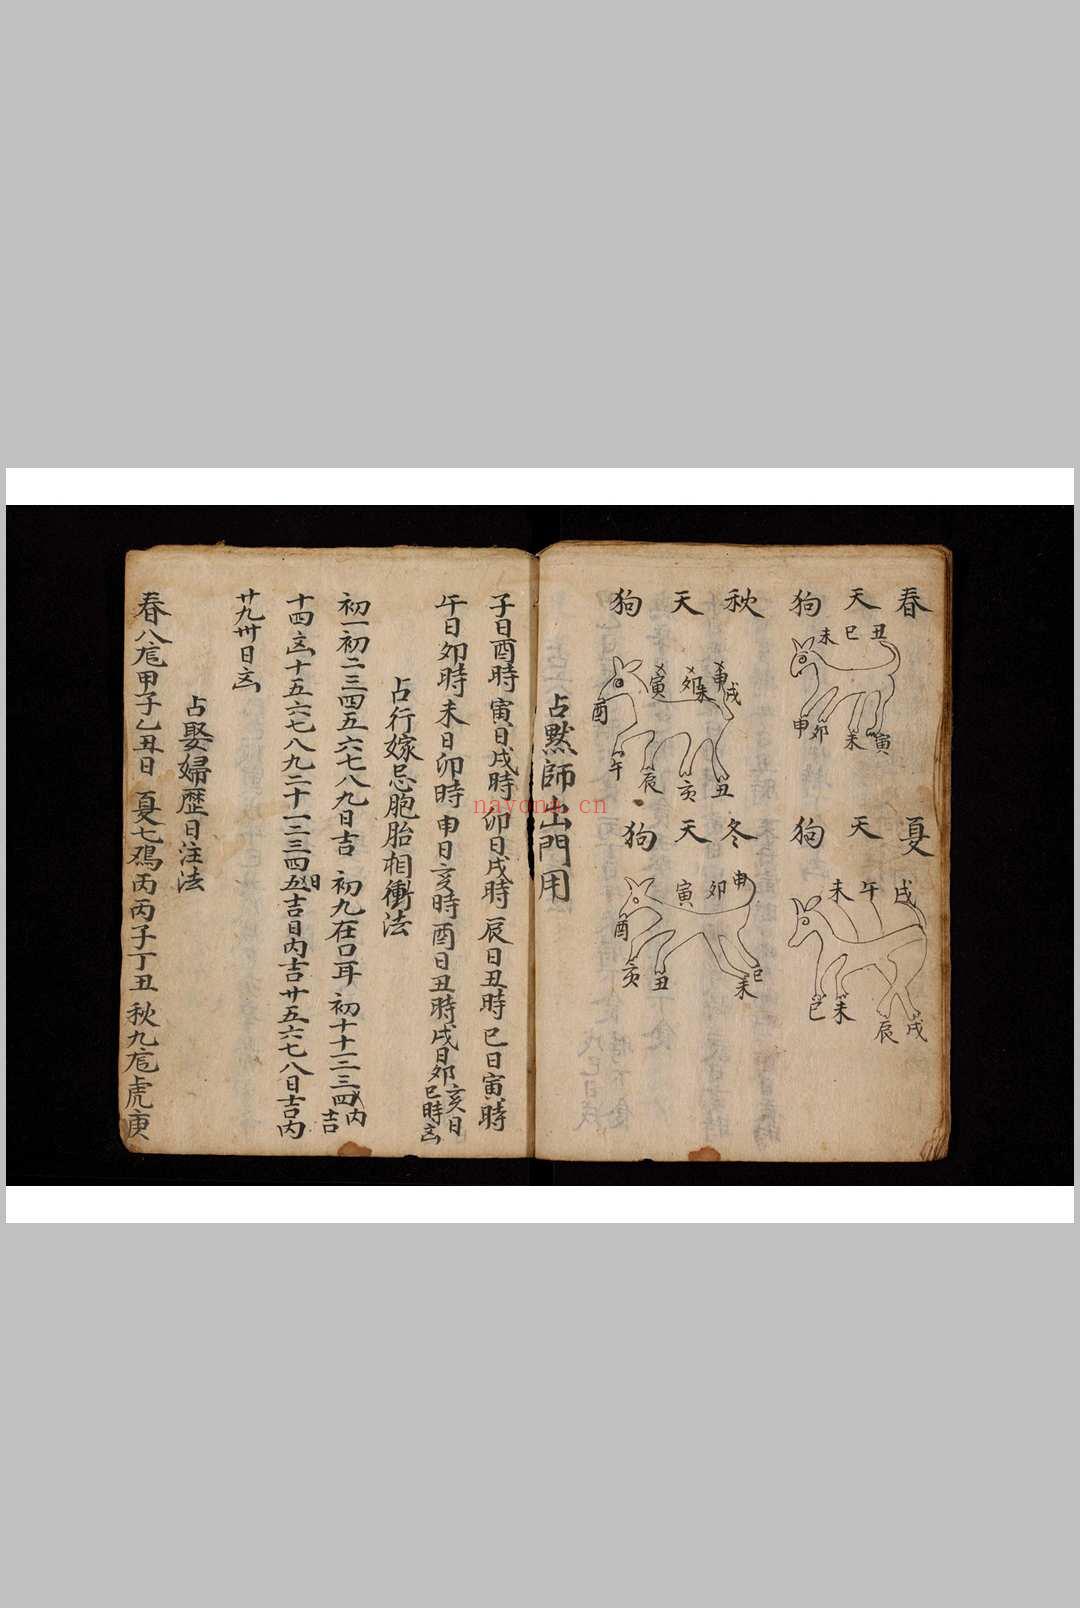 春天狗
丑
巳
未
申
卯
未
寅
夏天狗
戌
午
未
巳
未
辰
戌
秋天狗
戌
申
未
卯
寅
酉
午
辰
亥
丑
冬天狗
申
卯
寅
酉
亥
丑
未
巳
占黙師出門用
子日酉時 寅日戌時 卯日戌時 辰日丑時 巳日寅時
午日卯時 未日卯時 申日亥時 酉日丑時 戌日卯亥日巳時
占行嫁忌胞胎相衝法
初一初二三四五六七八九日吉 初九在口耳 初十十一二三四内吉
十四 十五六七八九二十一二三四五日吉日内吉廿五六七八日吉内
廿九卅日
占娶婦歴日注法
春八 甲子乙丑日 夏七 丙丙子丁丑 秋九 虎庚
nayong.cn